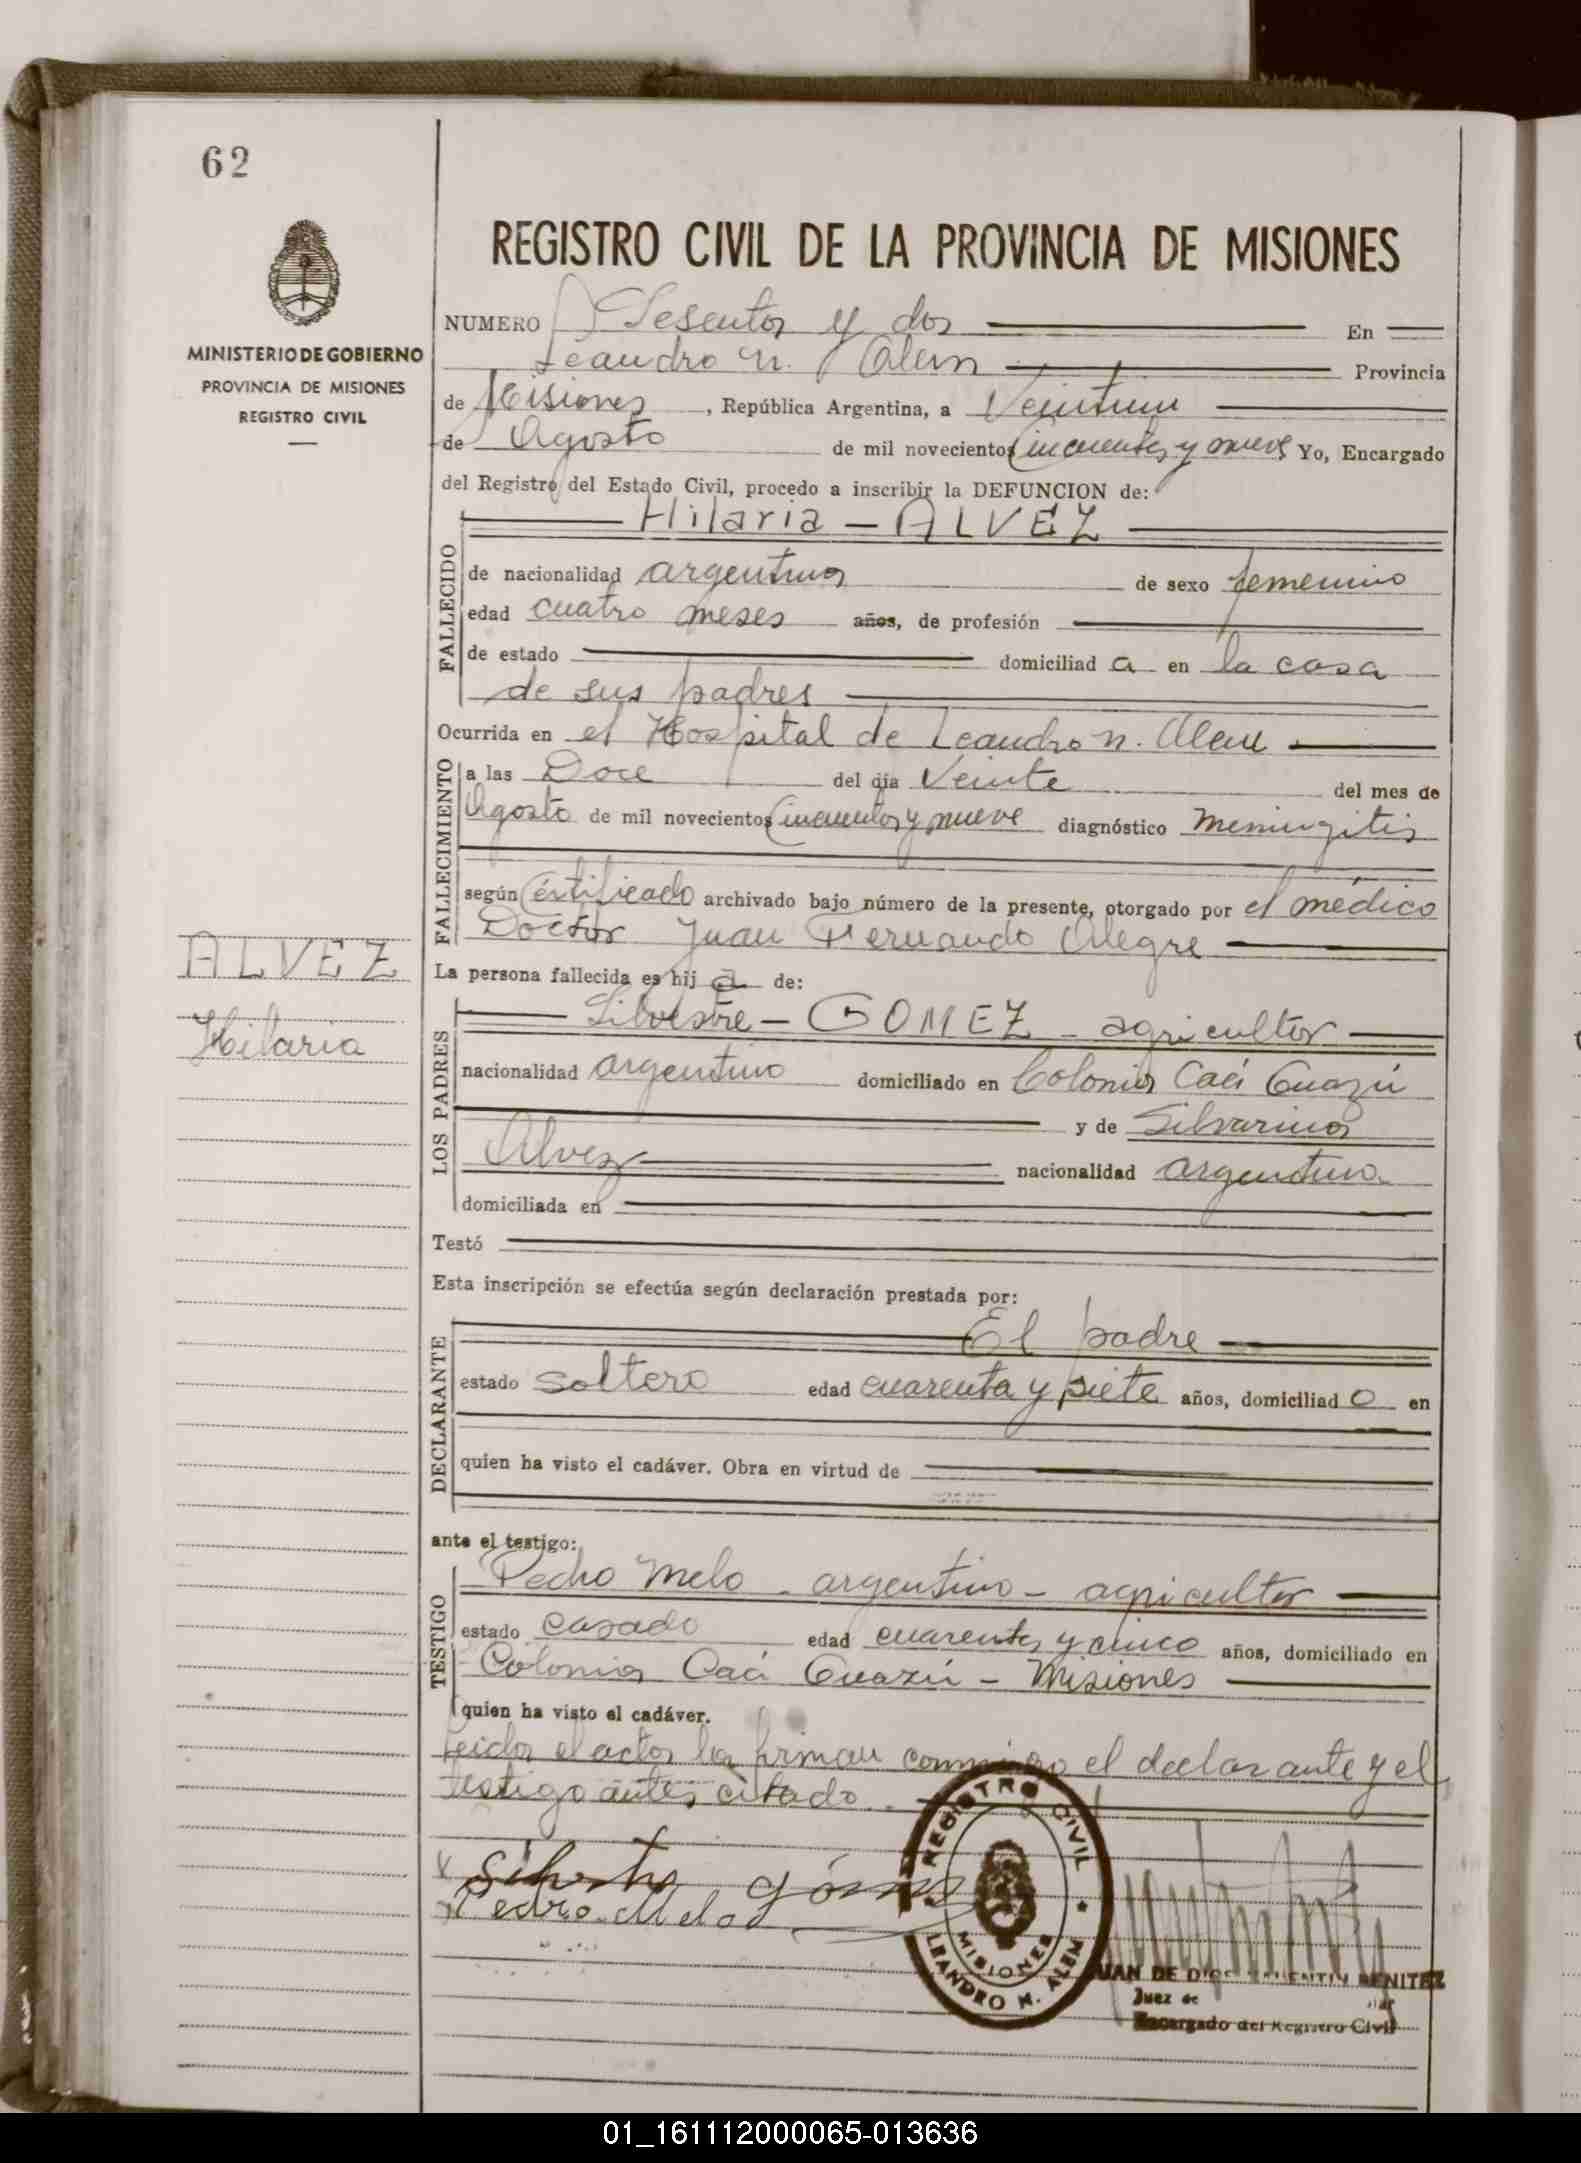 62
REGISTRO CIVIL DE LA PROVINCIA DE MISIONES
MINISTERIO DE GOBIERNO
PROVINCIA DE MISIONES
REGISTRO CIVIL
NUMERO Sesenta y dos En
Leandro N. Alem Provincia
de Misiones, República Argentina, a Veintiun
de Agosto de mil novecientos Cincuenta y nueve Yo, Encargado
del Registro del Estado Civil, procedo a inscribir la DEFUNCION de:
Hilaria - ALVEZ
FALLECIDO
de nacionalidad argentina de sexo femenino
edad cuatro meses años, de profesión
de estado domiciliad a en la casa
de sus padres
Ocurrida en el Hospital de Leandro N. Alem
FALLECIMIENTO
a las Doce del día Veinte del mes de
Agosto de mil novecientos Cincuenta y nueve diagnóstico Meningitis
según Certificado archivado bajo número de la presente, otorgado por el médico
Doctor Juan Fernando Alegre
ALVEZ
Hilaria
La persona fallecida es hij a de:
LOS PADRES
Silvestre - GOMEZ - agricultor
nacionalidad argentino domiciliado en Colonia Caá Guazú
y de Silvarina
Alvez nacionalidad argentina
domiciliada en
Testó
Esta inscripción se efectúa según declaración prestada por:
DECLARANTE
El padre
estado soltero edad cuarenta y siete años, domiciliad o en
quien ha visto el cadáver. Obra en virtud de
ante el testigo:
TESTIGO
Pedro Melo - argentino - agricultor
estado casado edad cuarenta y cinco años, domiciliado en
Colonia Caá Guazú - Misiones
quien ha visto el cadáver.
Leida el acta la firman conmigo el declarante y el
testigo antes citado.
Silvestre Gómez
Pedro Melo
REGISTRO CIVIL
MISIONES
LEANDRO N. ALEM
JUAN DE DIOS VALENTIN BENITEZ
Juez de
Encargado del Registro Civil
01_161112000065-013636